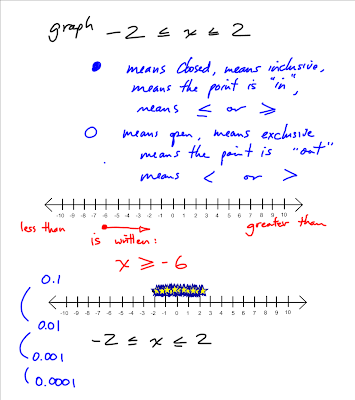 graph -2 ≤ x ≤ 2
● means closed, means inclusive,
means the point is "in",
means ≤ or ≥
○ means open, means exclusive
means the point is "out"
means < or >
-10 -9 -8 -7 -6 -5 -4 -3 -2 -1 0 1 2 3 4 5 6 7 8 9 10
less than
greater than
is written:
x ≥ -6
0.1
-10 -9 -8 -7 -6 -5 -4 -3 -2 -1 0 1 2 3 4 5 6 7 8 9 10
0.01
-2 ≤ x ≤ 2
0.001
0.0001